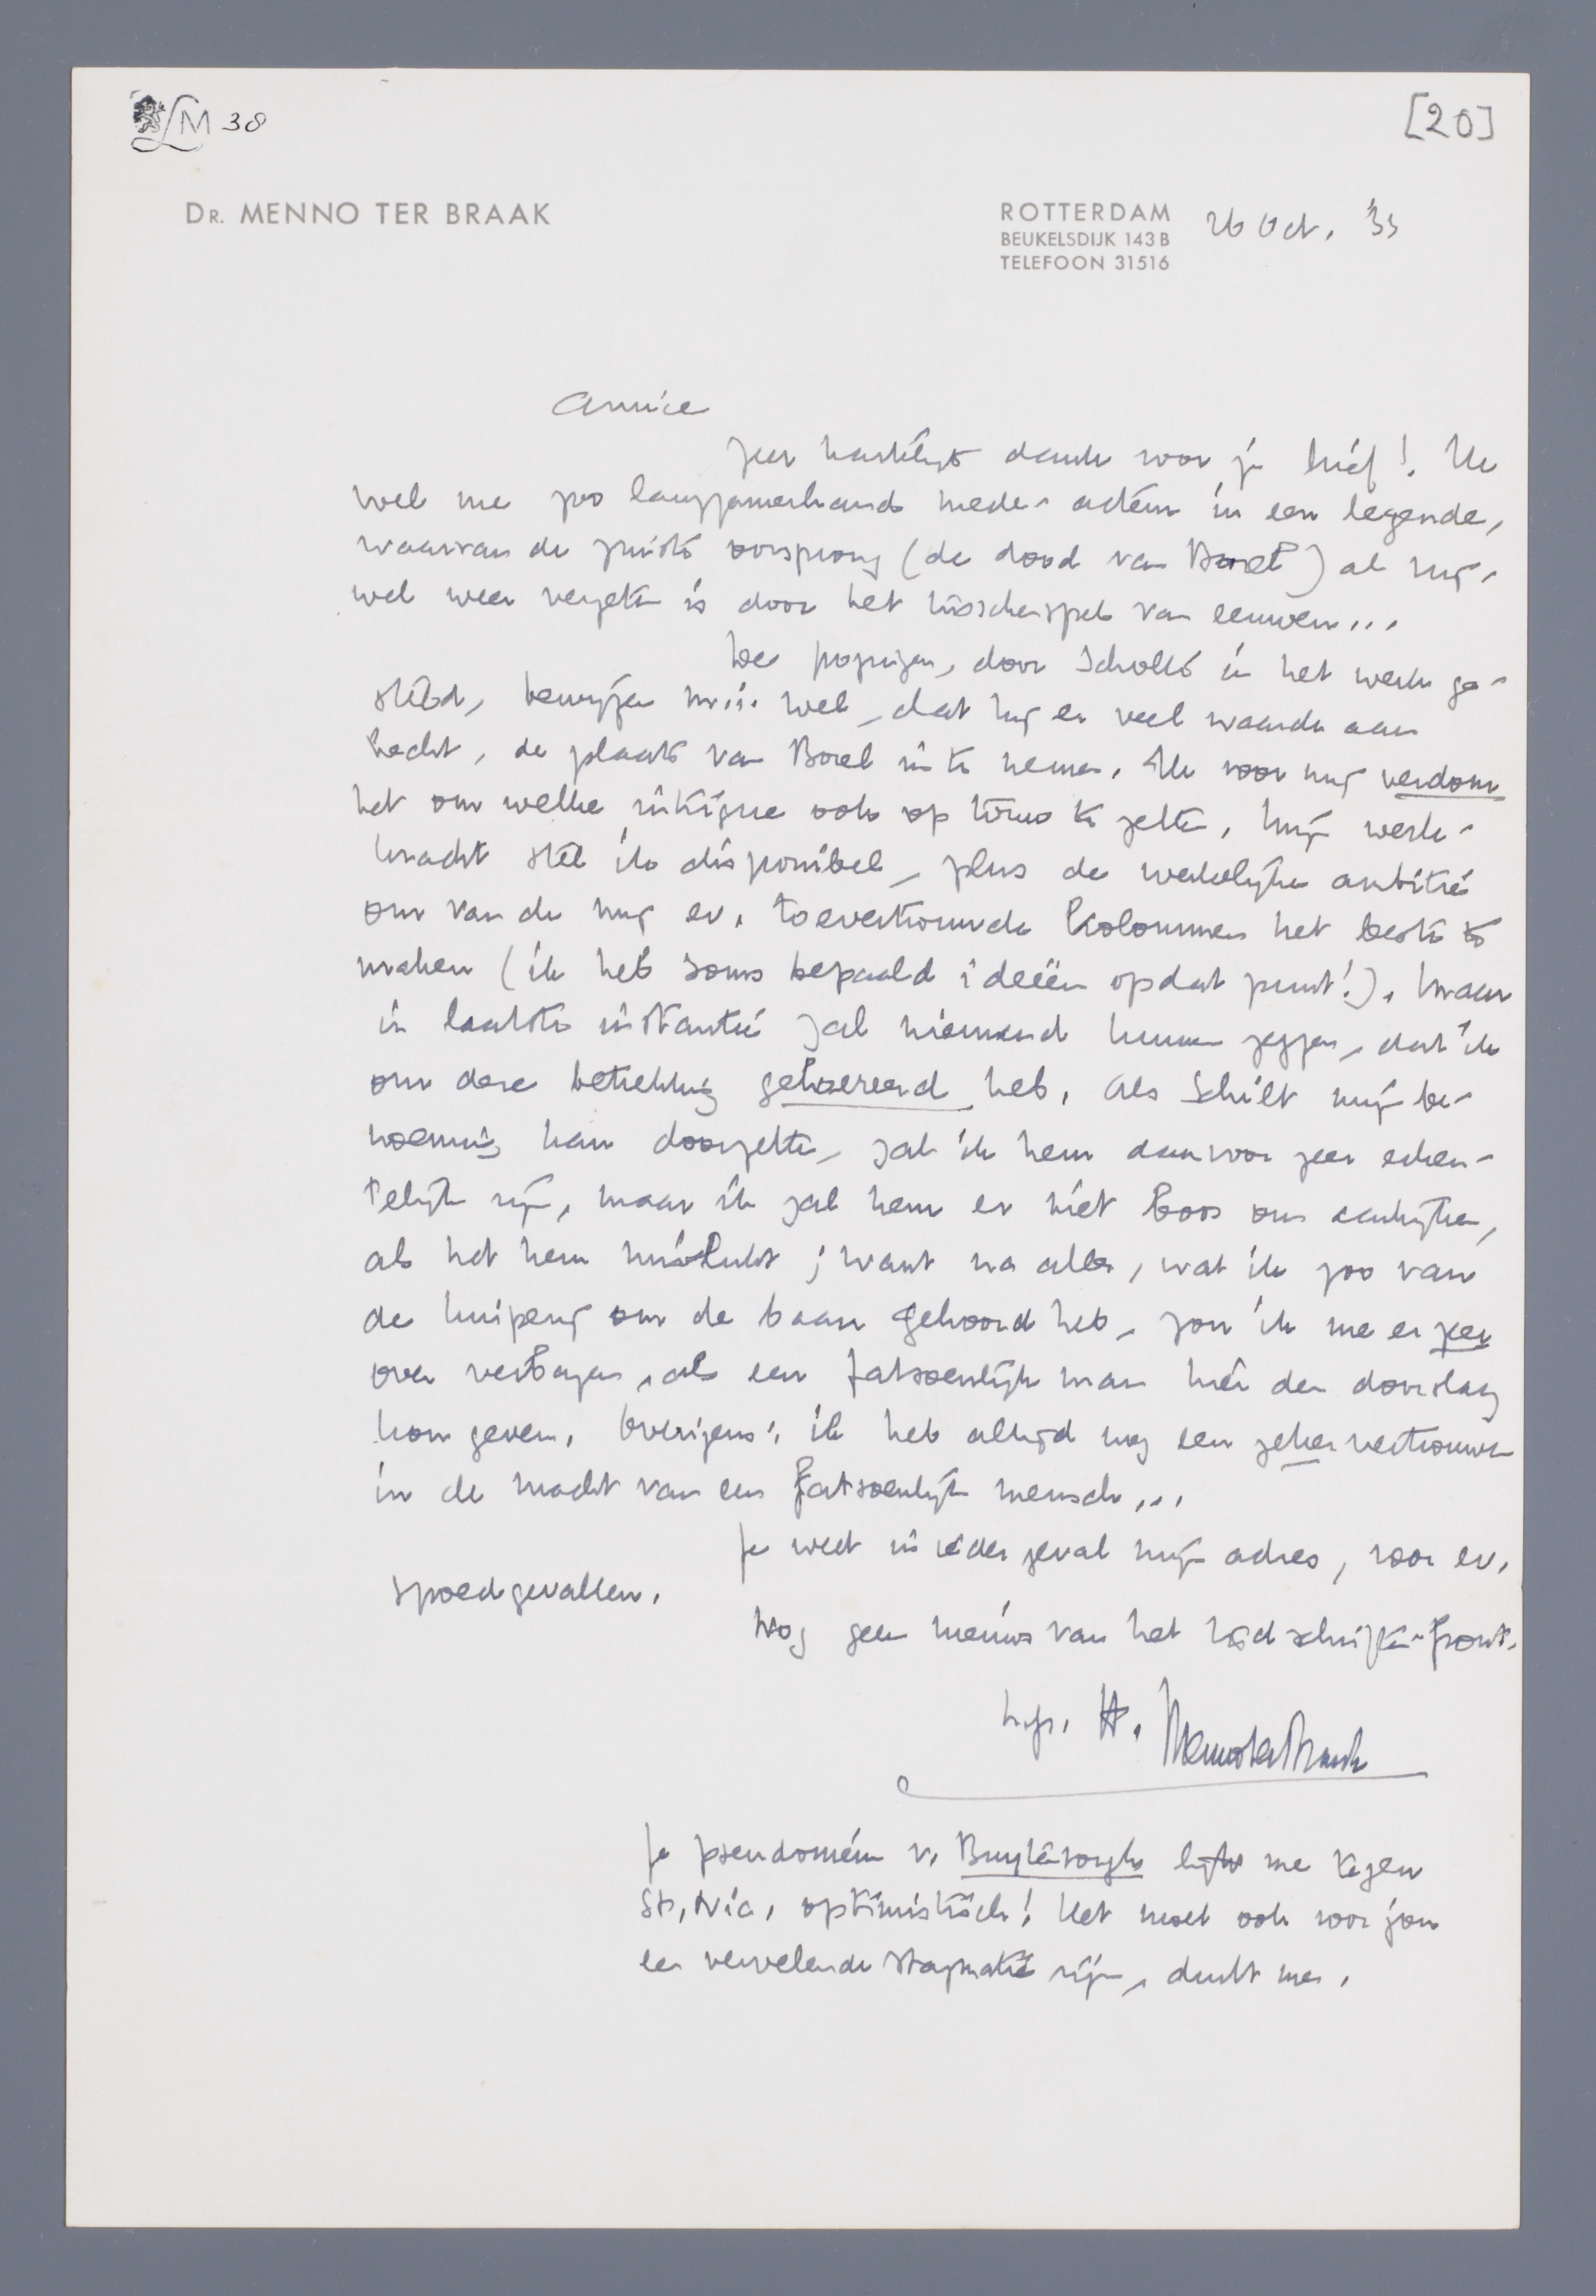 LM 38
[20]
DR. MENNO TER BRAAK
ROTTERDAM
BEUKELSDIJK 143 B
TELEFOON 31516
26 Oct. '33
Amice
Zeer hartelijk dank voor je brief! Ik
voel me zoo langzamerhand mede-acteur in een legende,
waarvan de juiste oorsprong (de dood van Borel) al bij-
wel weer vergeten is door het tusschenspel van eeuwen...
De pogingen, door Scholte in het werk ge-
steld, bewijzen m.i. wel, dat hij er veel waarde aan
hecht, de plaats van Borel in te nemen. Ik voor mij verdom
het om welke intrigue ook op touw te zetten. Mijn werk-
kracht stel ik disponibel, plus de werkelijke ambitie
om van de mij ev. toevertrouwde kolommen het beste te
maken (ik heb soms bepaald ideeën op dat punt!). Maar
in laatste instantie zal niemand kunnen zeggen, dat ik
om deze betrekking gehoereerd heb. Als Schilt mijn be-
noeming kan doorzetten, zal ik hem daarvoor zeer erken-
telijk zijn, maar ik zal hem er niet boos om aankijken,
als het hem mislukt; want na alles, wat ik zoo van
de kuiperij om de baan gehoord heb, zou ik me er zeer
over verbazen, als een fatsoenlijk man hier den doorslag
kon geven. Overigens: ik heb altijd nog een zeker vertrouwen
in de macht van een fatsoenlijk mensch...
Je weet in ieder geval mijn adres, voor ev.
spoedgevallen.
Nog geen nieuws van het tijdschriften-front.
h.gr. tt. Menno ter Braak
Je pseudoniem v. Buytesorgh lijkt me tegen
St. Nic. optimistisch! Het moet ook voor jou
een vervelende stagnatie zijn, dunkt me.